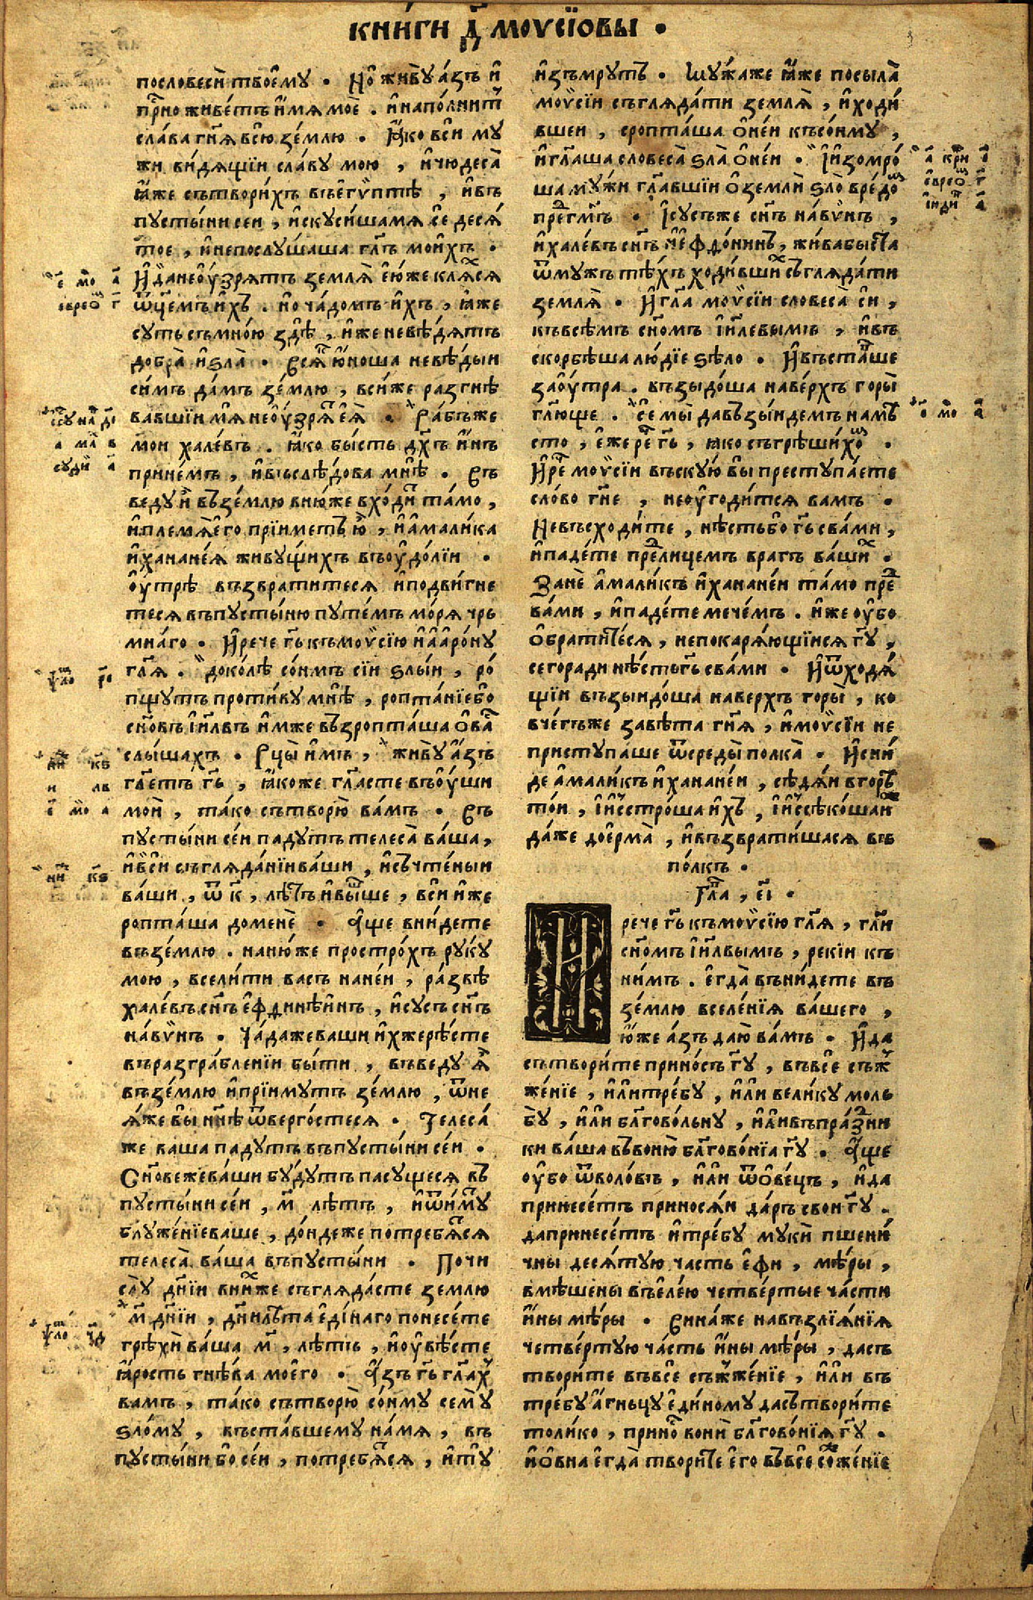 КНИ́ГИ Д҃ МОѴСІ́ОВЫ ·
пословесѝ твоемꙋ̀ . Но̀ живꙋ̀ а́зъ и҆
прⷭ҇но живе́тъ и҆́мя моѐ . и҆ напо́лнит
сла́ва гн҃я всю̀ зе́млю . Я҆́ко всѝ мꙋ
жи ви́дящїи сла́вꙋ мою̀ , и҆ чюдеса̀
я҆́же сътвори́хъ въ е҆гѵ́птѣ , и҆ въ
пꙋсты́ни сеи , и҆ искꙋси́шамя сѐ деся́
тое , и҆ непослꙋ́шаша гл҃гъ мои́хъ .
И҆ да не оу҆́зрятъ земля̀ е҆ю́же кля́хся
ѿц҃е́мъ и҆́хъ . но ча́домъ и҆́хъ , я҆́же
сꙋть съ мно́ю здѣ̀ , и҆́же невѣ́дятъ
добра̀ и҆ ѕла̀ . Всѧ́ ю҆́ноша невѣ́дыи
си́мъ да́мъ зе́млю , вси́же разгнѣ
вавшїи мя̀ не оу҆́зря́ е҆я̀ . Ра́бъже
мои халевъ . я҆́ко бысть дх҃ъ и҆́нъ
при не́мъ , и҆ въслѣ́дова мнѣ̀ . Въ
ведꙋ и҆̀ въ зе́млю в ню́же вхо́ди та́мо ,
и҆ пле́мя е҆го̀ прїи́метъ ю҆̀ , и҆ а҆мали́ка
и҆ ханане́я живꙋ́щихъ въ оу҆до́лїи .
оу҆́трѣ възврати́теся и҆ подви́гне
теся въ пꙋсты́ню пꙋте́мъ мо́ря чръ
мна́го . И҆ рече гь҃ къ моѵсі́ю и҆ а҆аро́нꙋ
гл҃я . доко́лѣ со́нмъ сїи ѕлы́и , ро́
пщꙋтъ проти́вꙋ мнѣ̀ , ропта́нїе бо̀
сн҃о́въ і҆и҃лвъ и҆́мже възропта́ша о҆ ва́
слы́шахъ . Рцы̀ и҆́мъ , живꙋ̀ а҆́зъ
гл҃етъ гь҃ , я҆́коже гл҃асте въ оу҆́ши
мои̑ , та́ко сътворю̀ ва́мъ . Въ
пꙋсты́ни се́и падꙋ́тъ телеса̀ ва́ша ,
и҆ всѝ съгляда́нїи ва́ши , и҆ съчте́ныи
ва́ши , ѿ к҃ , лѣ́тъ и҆ вы́ше , всѝ и҆́же
ропта́ша до менѐ . А҆́ще вни́дете
въ зе́млю . на ню́же простро́хъ рꙋ́кꙋ
мою , всели́ти васъ на не́и , ра́звѣ
хале́въ сн҃ъ е҆фоні́инъ , и҆ і҆сꙋсъ сн҃ъ
на́вѵнъ . Ча́да же ва́ши и҆́хже рѣ́сте
въ разграбле́нїи бы́ти , въведꙋ я҆̀
въ зе́млю и҆ прїи́мꙋтъ зе́млю , ѿ не
я҆́же вы̀ нн҃ѣ ѿверго́стеся . Телеса́
же ва́ша падꙋтъ въ пꙋсты́ни се́и .
Сн҃овеже ва́ши бꙋ́дꙋтъ пасꙋ́щеся въ
пꙋсты́ни се́и , м҃ лѣтъ , и҆ ѿи́мꙋ
блꙋже́нїе ваше , до́ндеже потребя́тся
телеса̀ ва́ша въ пꙋсты́ни . Почи
слꙋ̀ дн҃їи в ни́хже съгляда́сте землю
м҃ дн҃їи , дн҃и въ лѣ́та е҆ди́наго понесе́те
грѣхѝ ва́ша м҃ , лѣ́тъ , и҆ оу҆вѣ́сте
я҆́рость гнѣ́ва моего . А҆́зъ гь҃ гл҃ахъ
вамъ , та́ко сътворю̀ со́нмꙋ семꙋ
ѕло́мꙋ , въста́вшемꙋ на́ мя , въ
пꙋсты́ни бо се́и , потребя́тся , и҆ тꙋ̀
и҆зъмрꙋтъ . Мꙋ́жаже я҆́же посыла̀
моѵсїи съгляда́ти земля̀ , и҆ ходи́
вшеи , сропта́ша о҆ не́и къ со́нмꙋ ,
и҆ гл҃аша словеса̀ ѕла̀ о҆ не́и . И҆ изомро́
ша мꙋ́жи гл҃авшїи о҆ земли̑ ѕло̀ вредо̀
пре гм҃ъ . І҆сꙋсъже сн҃ъ на́вѵнъ ,
и҆ хале́въ сн҃ъ и҆е҆фоні́инъ , жи́ва быста
ѿ мꙋжъ тѣ́хъ ходи́вшихъ съгляда́ти
земля̀ . И҆ гл҃а моѵсїи словеса̀ си̑ ,
къ всѣ́мъ сн҃омъ і҆и҃левымъ , и҆ въ
скорбѣша лю́дїе ѕѣло . И҆ въста́вше
заоу҆тра . възыдо́ша на ве́рхъ горы̀
гл҃юще . се мы̀ да възы́ндемъ на мѣ́
сто , е҆́же ре гь҃ , я҆ко съгрѣши́хо .
И҆ ре моѵсїи въскꙋю вы̀ престꙋпа́ете
сло́во гн҃е , не оу҆годи́тся вамъ .
Невъсходи́те , нѣ́стьбо̀ гь҃ съ ва́ми ,
и҆ паде́те пре лицемъ врагъ ва́ши .
Занѐ а҆мали́къ и҆ ханане́и та́мо пре
ва́ми , и҆ паде́те мече́мъ . и҆́же оу҆бо
о҆брати́стеся , непокаря́ющїися гꙋ҃ ,
сегоради нѣ́сть гь҃ с ва́ми . И҆ ѿходя́
щїи възындо́ша на верхъ горы̀ , ко
вче́гъже завѣта гн҃я , и҆ моѵсїи не
пристꙋпа́ше ѿ среды̀ полка̀ . И҆ сни́
де а҆мали́къ и҆ ханане́и , сѣдя́и в горѣ
то́и , и҆ и҆сстро́ша и҆́хъ , и҆ и҆ссѣко́шаи
да́же до е҆рма̀ , и҆ възврати́шася въ
по́лкъ .
Гл҃а , е҃і .
И рече гь҃ къ моѵсїю гл҃я , гл҃и
сн҃омъ і҆и҃лвымъ , рекїи къ
ни́мъ . е҆гда̀ вънидете въ
зе́млю вселе́нїя ва́шего ,
ю҆́же а҆зъ даю̀ ва́мъ . И҆ да
сътвори́те прино́съ гꙋ҃ , въ все съж
же́нїе , и҆ли̑ тре́бꙋ , и҆ли̑ вели́кꙋ моль
бꙋ , и҆ли̑ бл҃гово́льнꙋ , и҆ли̑ въ пра́здни
ки ва́ша въ воню̀ бл҃гово́нїя гꙋ҃ . А҆́ще
оу҆бо ѿ воло́въ , и҆ли̑ ѿ о҆ве́цъ , и҆ да
принесе́тъ принося́и да́ръ свои гꙋ҃ .
да принесе́тъ и҆ тре́бꙋ мꙋки̑ пшени́
чны деся́тꙋю часть е҆фи , мѣ́ры ,
вмѣ́шены въ еле́ю четве́ртые ча́сти
и҆́ны мѣ́ры . Винаже на възлїя́нїя
четве́ртꙋю ча́сть и҆́ны мѣ́ры , дасъ
твори́те въ все съжже́нїе , и҆ли̑ въ
тре́бꙋ а҆́гньцꙋ е҆ди́номꙋ да сътвори́те
толи́ко , прино́ вони̑ бл҃гово́нїя гꙋ҃ .
и҆ о҆вна̀ е҆гда̀ твори́те е҆го̀ въ все сожже́нїе